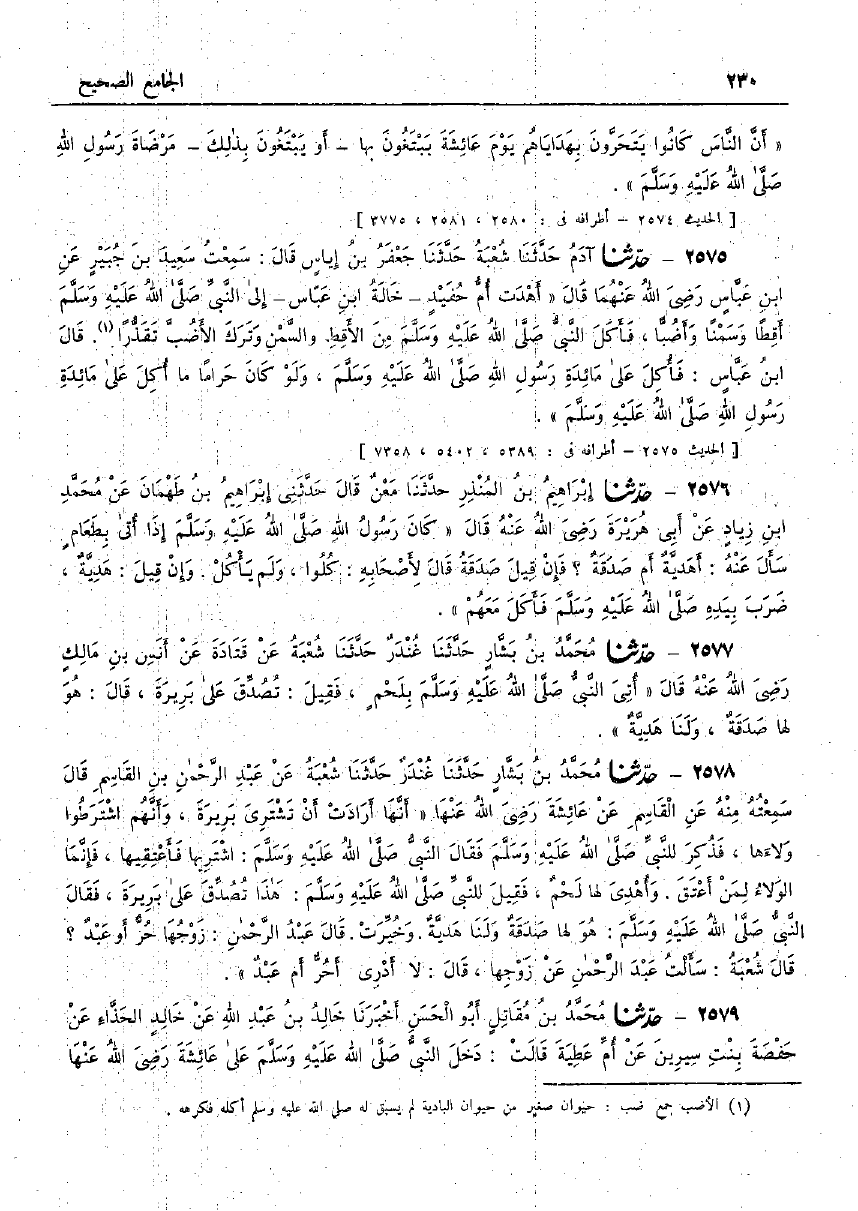 ٢٣٠ الجامع الصحيح
« أَنَّ النَّاسَ كَانُوا يَتَحَرَّونَ بِهَدَايَاهُم يَوْمَ عَائِشَةَ يَبْتَغُونَ بها – أَو يَبْتَغُونَ بِذٰلِكَ – مَرْضَاةَ رَسُولِ اللهِ
صَلَّىٰ اللهُ عَلَيْهِ وَسَلَّمَ » .
[ الحديث ٢٥٧٤ – أطرافه فى : ٢٥٨٠ ، ٢٥٨١ ، ٣٧٧٥ ]
٢٥٧٥ – حدّثنا آدَمُ حَدَّثَنَا شُعْبَةُ حَدَّثَنَا جَعْفَرُ بنُ إياسٍ قَالَ : سَمِعْتُ سَعِيدَ بنَ جُبَيْرٍ عَنِ
ابنِ عَبَّاسٍ رَضِىَ اللهُ عَنْهُمَا قَالَ « أَهْدَت أُمُّ حُفَيْدٍ – خَالَةُ ابنِ عَبَّاسٍ – إلىٰ النَّبىِّ صَلَّىٰ اللهُ عَلَيْهِ وَسَلَّمَ
أَقِطًا وَسَمْنًا وَأَضُبًّا ، فَأَكَلَ النَّبىُّ صَلَّىٰ اللهُ عَلَيْهِ وَسَلَّمَ مِنَ الأَقِطِ والسَّمْنِ وَتَرَكَ الأَضُبَّ تَقَذُّرًا (١). قَالَ
ابنُ عَبَّاسٍ : فَأُكِلَ عَلىٰ مَائِدَةِ رَسُولِ اللهِ صَلَّىٰ اللهُ عَلَيْهِ وَسَلَّمَ ، وَلَوْ كَانَ حَرامًا ما أُكِلَ عَلىٰ مَائِدَةِ
رَسُولِ اللهِ صَلَّىٰ اللهُ عَلَيْهِ وَسَلَّمَ » .
[ الحديث ٢٥٧٥ – أطرافه فى : ٥٣٨٩ ، ٥٤٠٢ ، ٧٣٥٨ ]
٢٥٧٦ – حدّثنا إبْرَاهِيمُ بنُ المُنْذِرِ حدَّثَنَا مَعْنٌ قَالَ حَدَّثَنِى إبْرَاهِيمُ بنُ طَهْمَانَ عَنْ مُحَمَّدِ
ابنِ زِيادٍ عَنْ أَبِى هُرَيْرَةَ رَضِىَ اللهُ عَنْهُ قَالَ « كَانَ رَسُولُ اللهِ صَلَّىٰ اللهُ عَلَيْهِ وَسَلَّمَ إذَا أُتىَ بِطَعَامٍ
سَأَلَ عَنْهُ : أَهَدِيَّةٌ أَم صَدَقَةٌ ؟ فَإنْ قِيلَ صَدَقَةٌ قَالَ لأَصْحَابِهِ : كُلُوا ، وَلَم يَأْكُلْ . وَإنْ قِيلَ : هَدِيَّةٌ ،
ضَرَبَ بِيَدِهِ صَلَّىٰ اللهُ عَلَيْهِ وَسَلَّمَ فَأَكَلَ مَعَهُمْ » .
٢٥٧٧ – حدّثنا مُحَمَّدُ بنُ بَشَّارٍ حَدَّثَنَا غُنْدَرٌ حَدَّثَنَا شُعْبَةُ عَنْ قَتَادَةَ عَنْ أَنَسِ بنِ مَالِكٍ
رَضِىَ اللهُ عَنْهُ قَالَ « أُتِىَ النَّبىُّ صَلَّىٰ اللهُ عَلَيْهِ وَسَلَّمَ بِلَحْمٍ ، فَقِيلَ : تُصُدِّقَ عَلىٰ بَرِيرَةَ ، قَالَ : هُوَ
لها صَدَقَةٌ ، وَلَنَا هَدِيَّةٌ » .
٢٥٧٨ – حدّثنا مُحَمَّدُ بنُ بَشَّارٍ حَدَّثَنَا غُنْدَرٌ حَدَّثَنَا شُعْبَةُ عَنْ عَبْدِ الرَّحْمٰنِ بنِ القَاسِمِ قَالَ
سَمِعْتُهُ مِنْهُ عَنِ الْقَاسِمِ عَنْ عَائِشَةَ رَضِىَ اللهُ عَنْهَا « أَنَّهَا أَرَادَتْ أَنْ تَشْتَرِىَ بَرِيرَةَ ، وَأَنَّهُم اشْتَرَطُوا
وَلاءَها ، فَذُكِرَ للنَّبىِّ صَلَّىٰ اللهُ عَلَيْهِ وَسَلَّمَ فَقَالَ النَّبىُّ صَلَّىٰ اللهُ عَلَيْهِ وَسَلَّمَ : اشْتَرِيها فَأَعْتِقِيها ، فَإنَّمَا
الوَلاءُ لِمَنْ أَعْتَقَ . وَأُهْدِىَ لها لَحْمٌ ، فَقِيلَ للنَّبىِّ صَلَّىٰ اللهُ عَلَيْهِ وَسَلَّمَ : هَذا تُصُدِّقَ عَلىٰ بَرِيرَةَ ، فَقَالَ
النَّبىُّ صَلَّىٰ اللهُ عَلَيْهِ وَسَلَّمَ : هُوَ لها صَدَقَةٌ وَلَنَا هَدِيَّةٌ . وَخُيِّرَتْ . قَالَ عَبْدُ الرَّحْمٰنِ : زَوْجُهَا حُرٌّ أَو عَبْدٌ ؟
قَالَ شُعْبَةُ : سَأَلْتُ عَبْدَ الرَّحْمٰنِ عَنْ زَوْجِها ، قَالَ : لا أَدْرِى أَحُرٌّ أَم عَبْدٌ » .
٢٥٧٩ – حدّثنا مُحَمَّدُ بنُ مُقَاتِلٍ أَبُو الْحَسَنِ أَخْبَرَنَا خَالِدُ بنُ عَبْدِ اللهِ عَنْ خَالِدٍ الحَذَّاءِ عَنْ
حَفْصَةَ بِنْتِ سِيرِينَ عَنْ أُمِّ عَطِيَّةَ قَالَتْ : دَخَلَ النَّبىُّ صَلَّىٰ الله عَلَيْهِ وَسَلَّمَ عَلىٰ عَائِشَةَ رَضِىَ اللهُ عَنْهَا
(١) الأضب جمع ضب : حيوان صغير من حيوان البادية لم يسبق له صلى الله عليه وسلم أكله فكرهه .